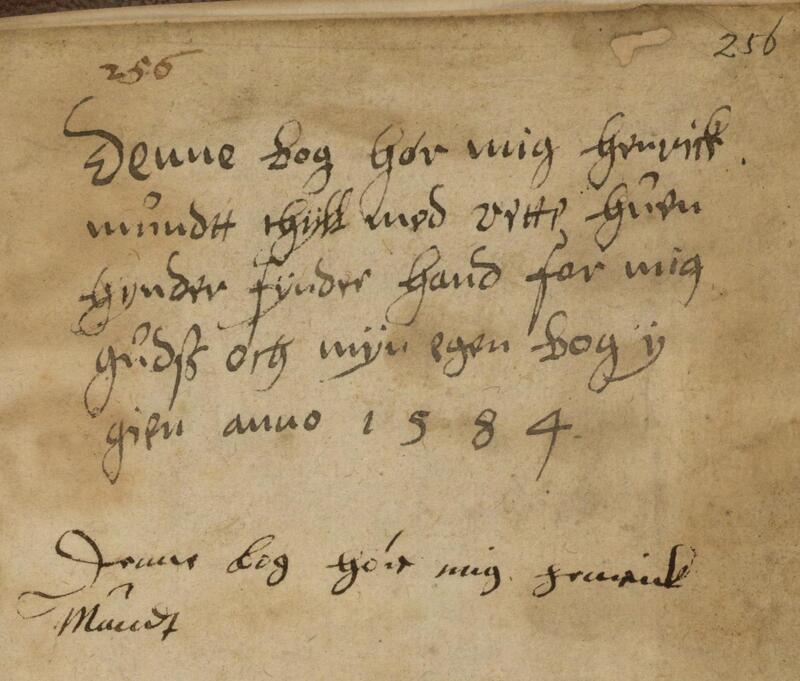 256 256
Denne bog hør mig henrick
můndtt thyll med rette hůen
hynder fynder hand før mig
gůdß och mÿn egen bog ÿ
gien anno 1584
Denne bog hør mig Henrick
Můndt